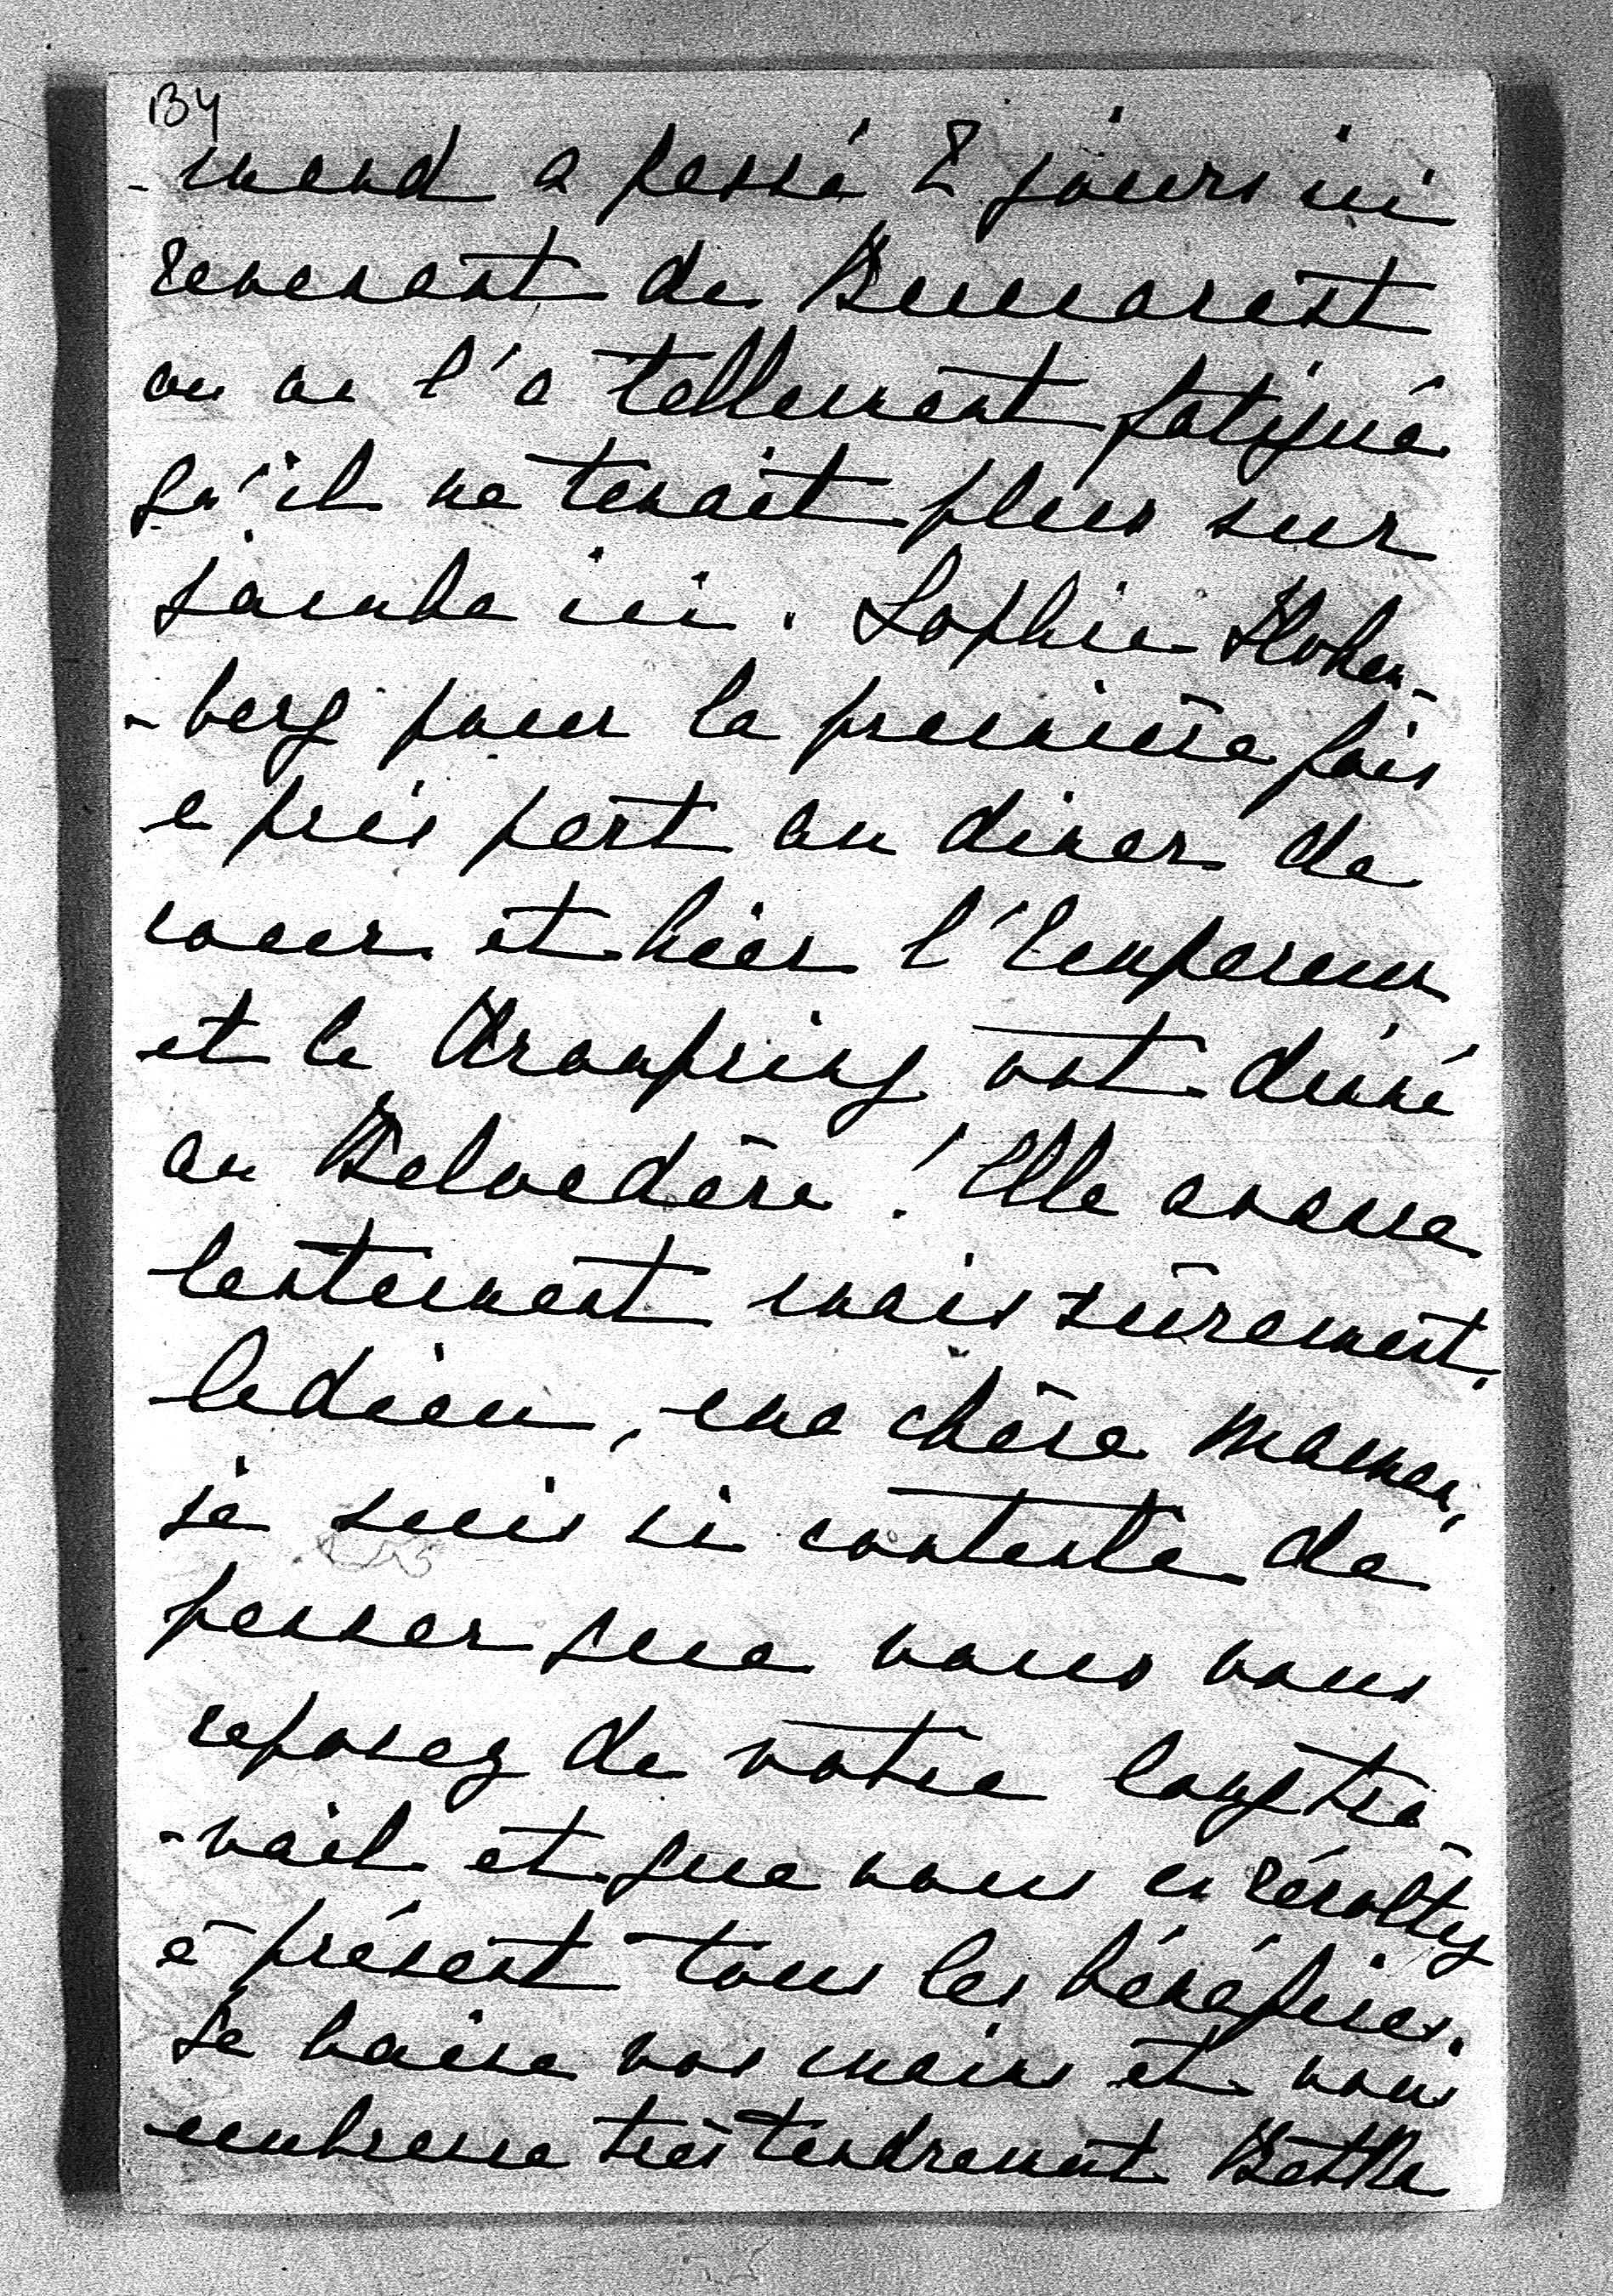 134
-mend a passé 2 jours ici
revenant de Bucarest
où on l'a tellement fatigué
qu'il ne tenait plus sur
jambe ici. Sophie Hohen-
-berg pour la première fois
a pris part au diner de
cour et hier l'Empereur
et le Kronprinz ont dinné
au Belvedère! Elle avance
lentement mais sûrement.
Adieu, ma chère Maman,
je suis si contente de
penser que vous vous
reposez de votre long tra-
-vail et que vous en récoltez
à présent tous les bénéfices.
Je baise vos mains et vous
embrasse très tendrement Betka